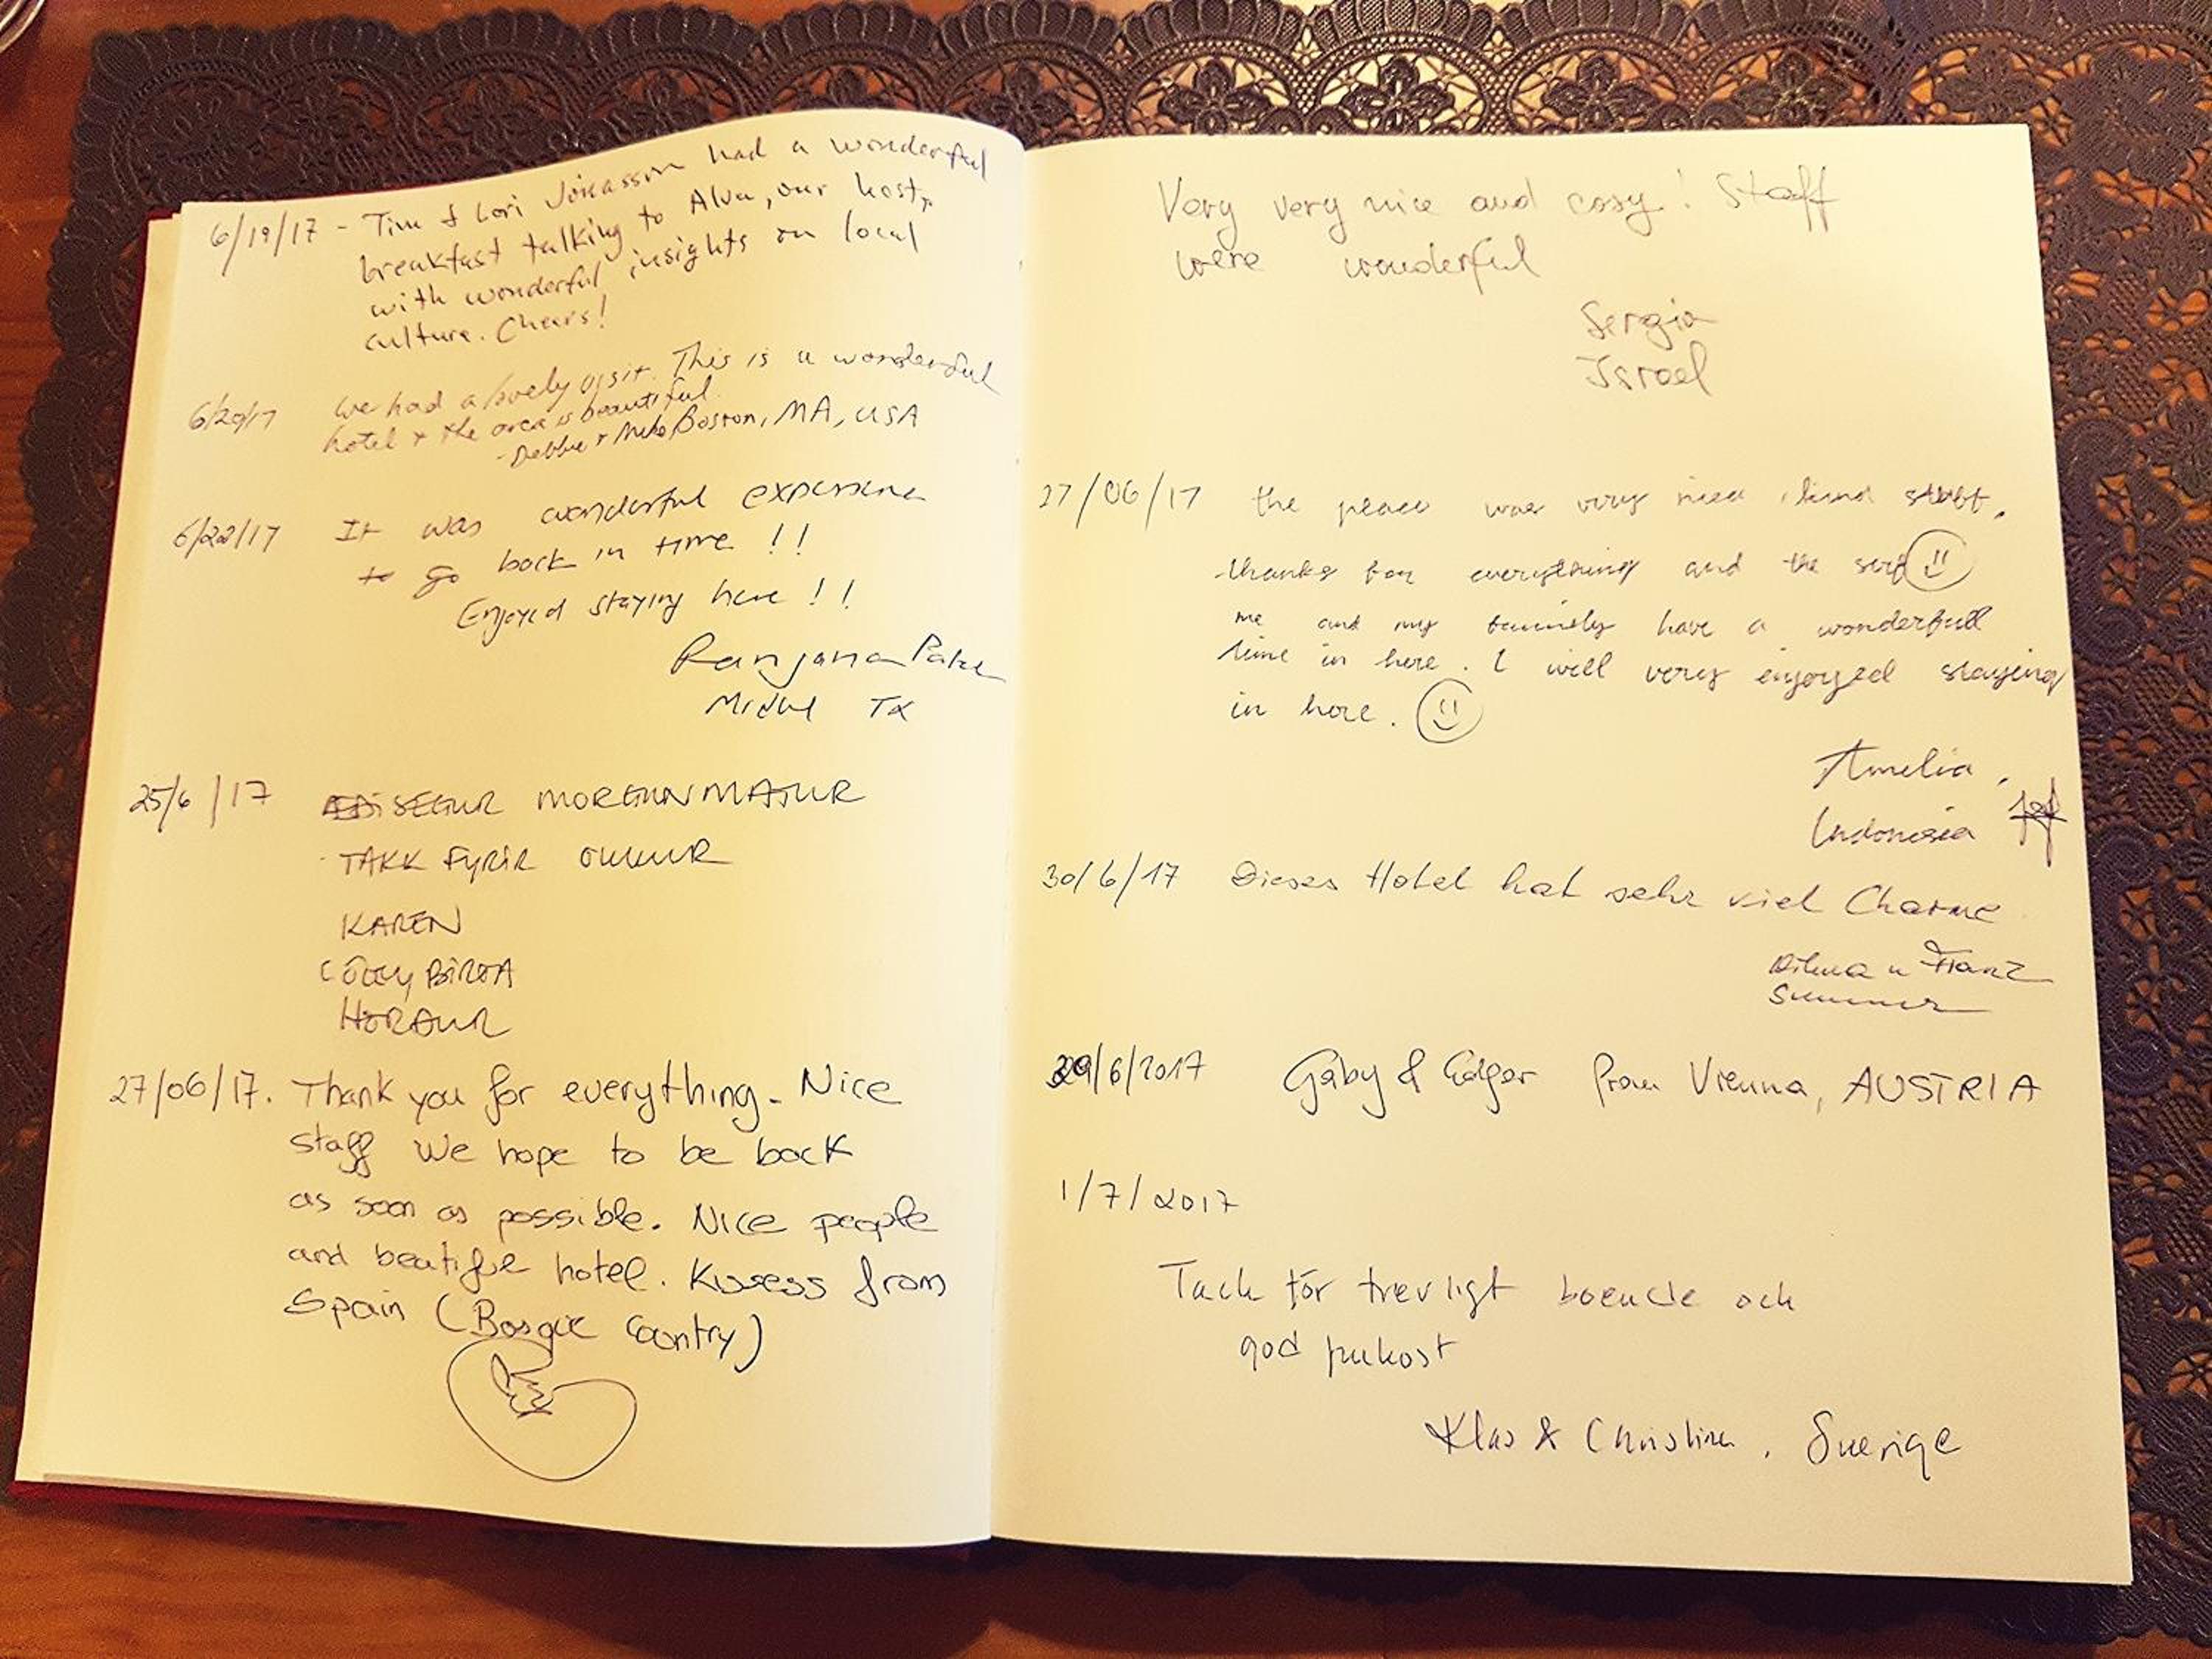 6/19/17 - Tim & Lori Jonasson had a wonderful
breakfast talking to Alva, our host,
with wonderful insights on local
culture. Cheers!
6/20/17 We had a lovely visit. This is a wonderful
hotel + the area is beautiful.
- Debbie + Mike Boston, MA, USA
6/22/17 It was wonderful experience
to go back in time !!
Enjoyed staying here !!
Ranjana
TX
25/6/17 MORGUNMATUR
TAKK FYRIR OKKUR
KAREN
BIRTA
HÖRÐUR
27/06/17. Thank you for everything. Nice
staff We hope to be back
as soon as possible. Nice people
and beatiful hotel. Kissess from
Spain (Basque Country)
Very very nice and cosy! Staff
were wonderful
Sergia
Israel
27/06/17 the place was very nice, kind staff.
thanks for everything and the
me and my family have a wonderfull
time in here. I will very enjoyed staying
in here.
Amelia,
Indonesia
30/6/17 Dieses Hotel hat sehr viel Charme
u Franz
29/6/2017 Gaby & Edgar from Vienna, AUSTRIA
1/7/2017
Tack för trevligt boende och
god frukost
Klas & Christina, Sverige